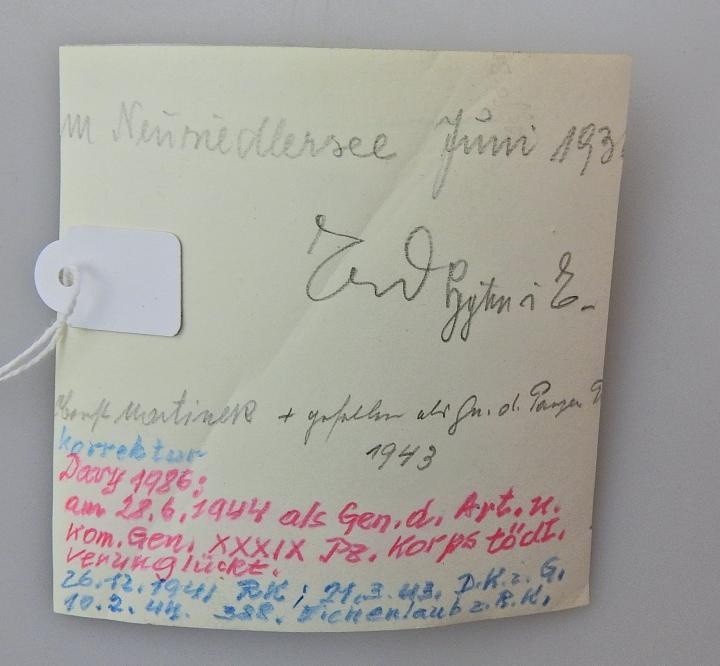 m Neusiedlersee Juni 193
Martinek + gefallen als Gn. d. Panzer
1943
Korrektur
Davy 1986:
am 28.6.1944 als Gen. d. Art. u.
kom. Gen. XXXIX Pz. Korps tödl.
verunglückt.
26.12.1941 RK; 21.3.43. D.K. z. G.
10.2.44. 388. Eichenlaub z. R.K.